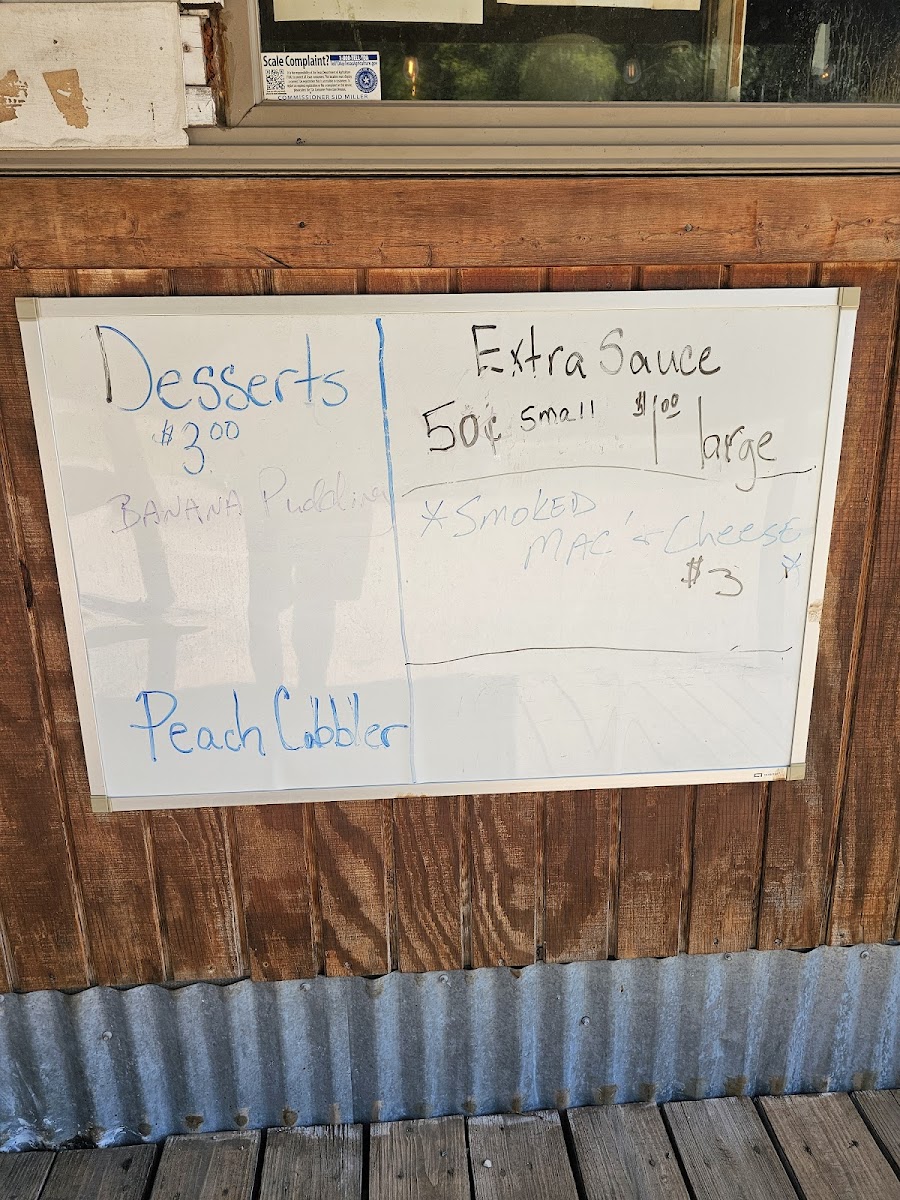 Scale Complaint?
COMMISSIONER SID MILLER
Desserts
$3.00
BANANA Pudding
Peach Cobbler
Extra Sauce
50¢ small $1.00 large
*SMOKED
MAC' & Cheese
$3 *